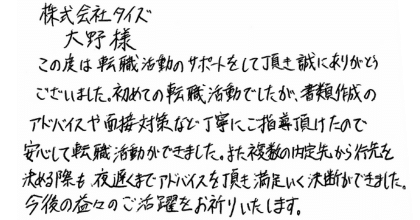 株式会社タイズ
大野様
この度は転職活動のサポートをして頂き誠にありがとう
ございました。初めての転職活動でしたが、書類作成の
アドバイスや面接対策など丁寧にご指導頂けたので
安心して転職活動ができました。また複数の内定先から行先を
決める際も、夜遅くまでアドバイスを頂き満足いく決断ができました。
今後の益々のご活躍をお祈りいたします。